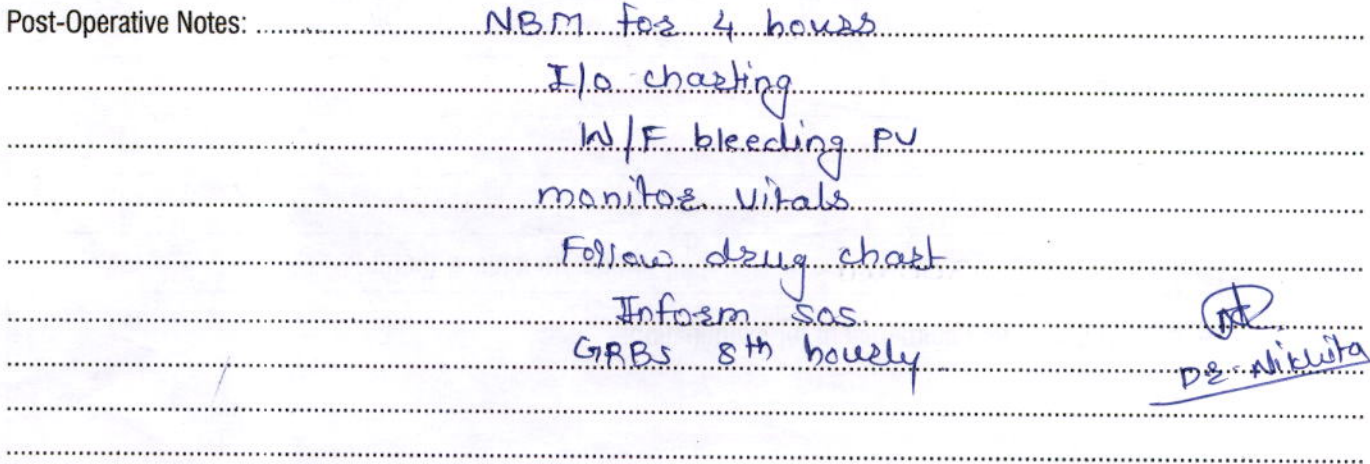 Post-Operative Notes: NBM for 4 hours
I/o charting
W/F bleeding PV
monitor vitals
Follow drug chart
Inform sos
GRBS 8th hourly
Dr. Nikhita